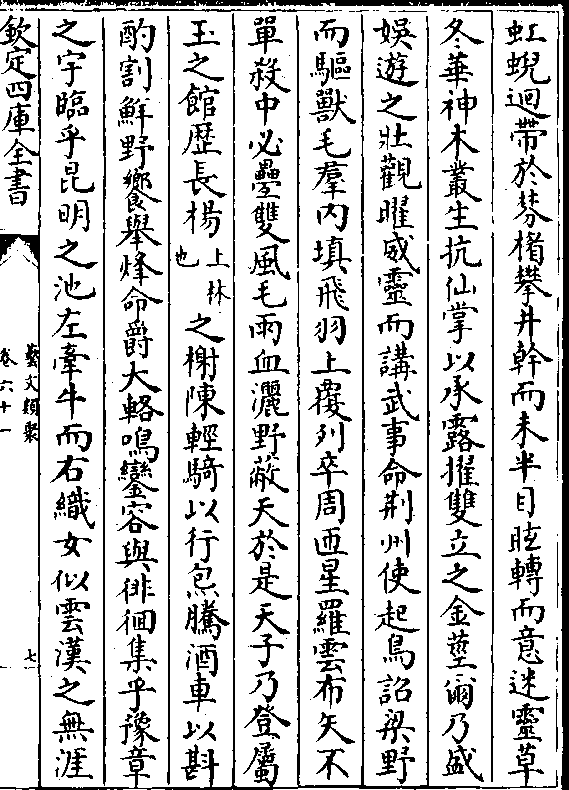 虹蜺迴帶於棼楣攀井幹而未半目眩轉而意迷靈草
冬華神木叢生抗仙掌以承露擢雙立之金莖爾乃盛
娛遊之壯觀曜威靈而講武事命荆州使起鳥詔梁野
而驅獸毛羣内填飛羽上覆列卒周匝星羅雲布矢不
單殺中必疊雙風毛雨血灑野蔽天於是天子乃登屬
玉之館歴長楊上林也之榭陳輕騎以行炰騰酒車以斟
酌割鮮野饗舉烽命爵大輅鳴鑾容與徘徊集乎豫章
之宇臨乎昆明之池左牽牛而右織女似雲漢之無涯
欽定四庫全書
藝文類聚
卷六十一
七